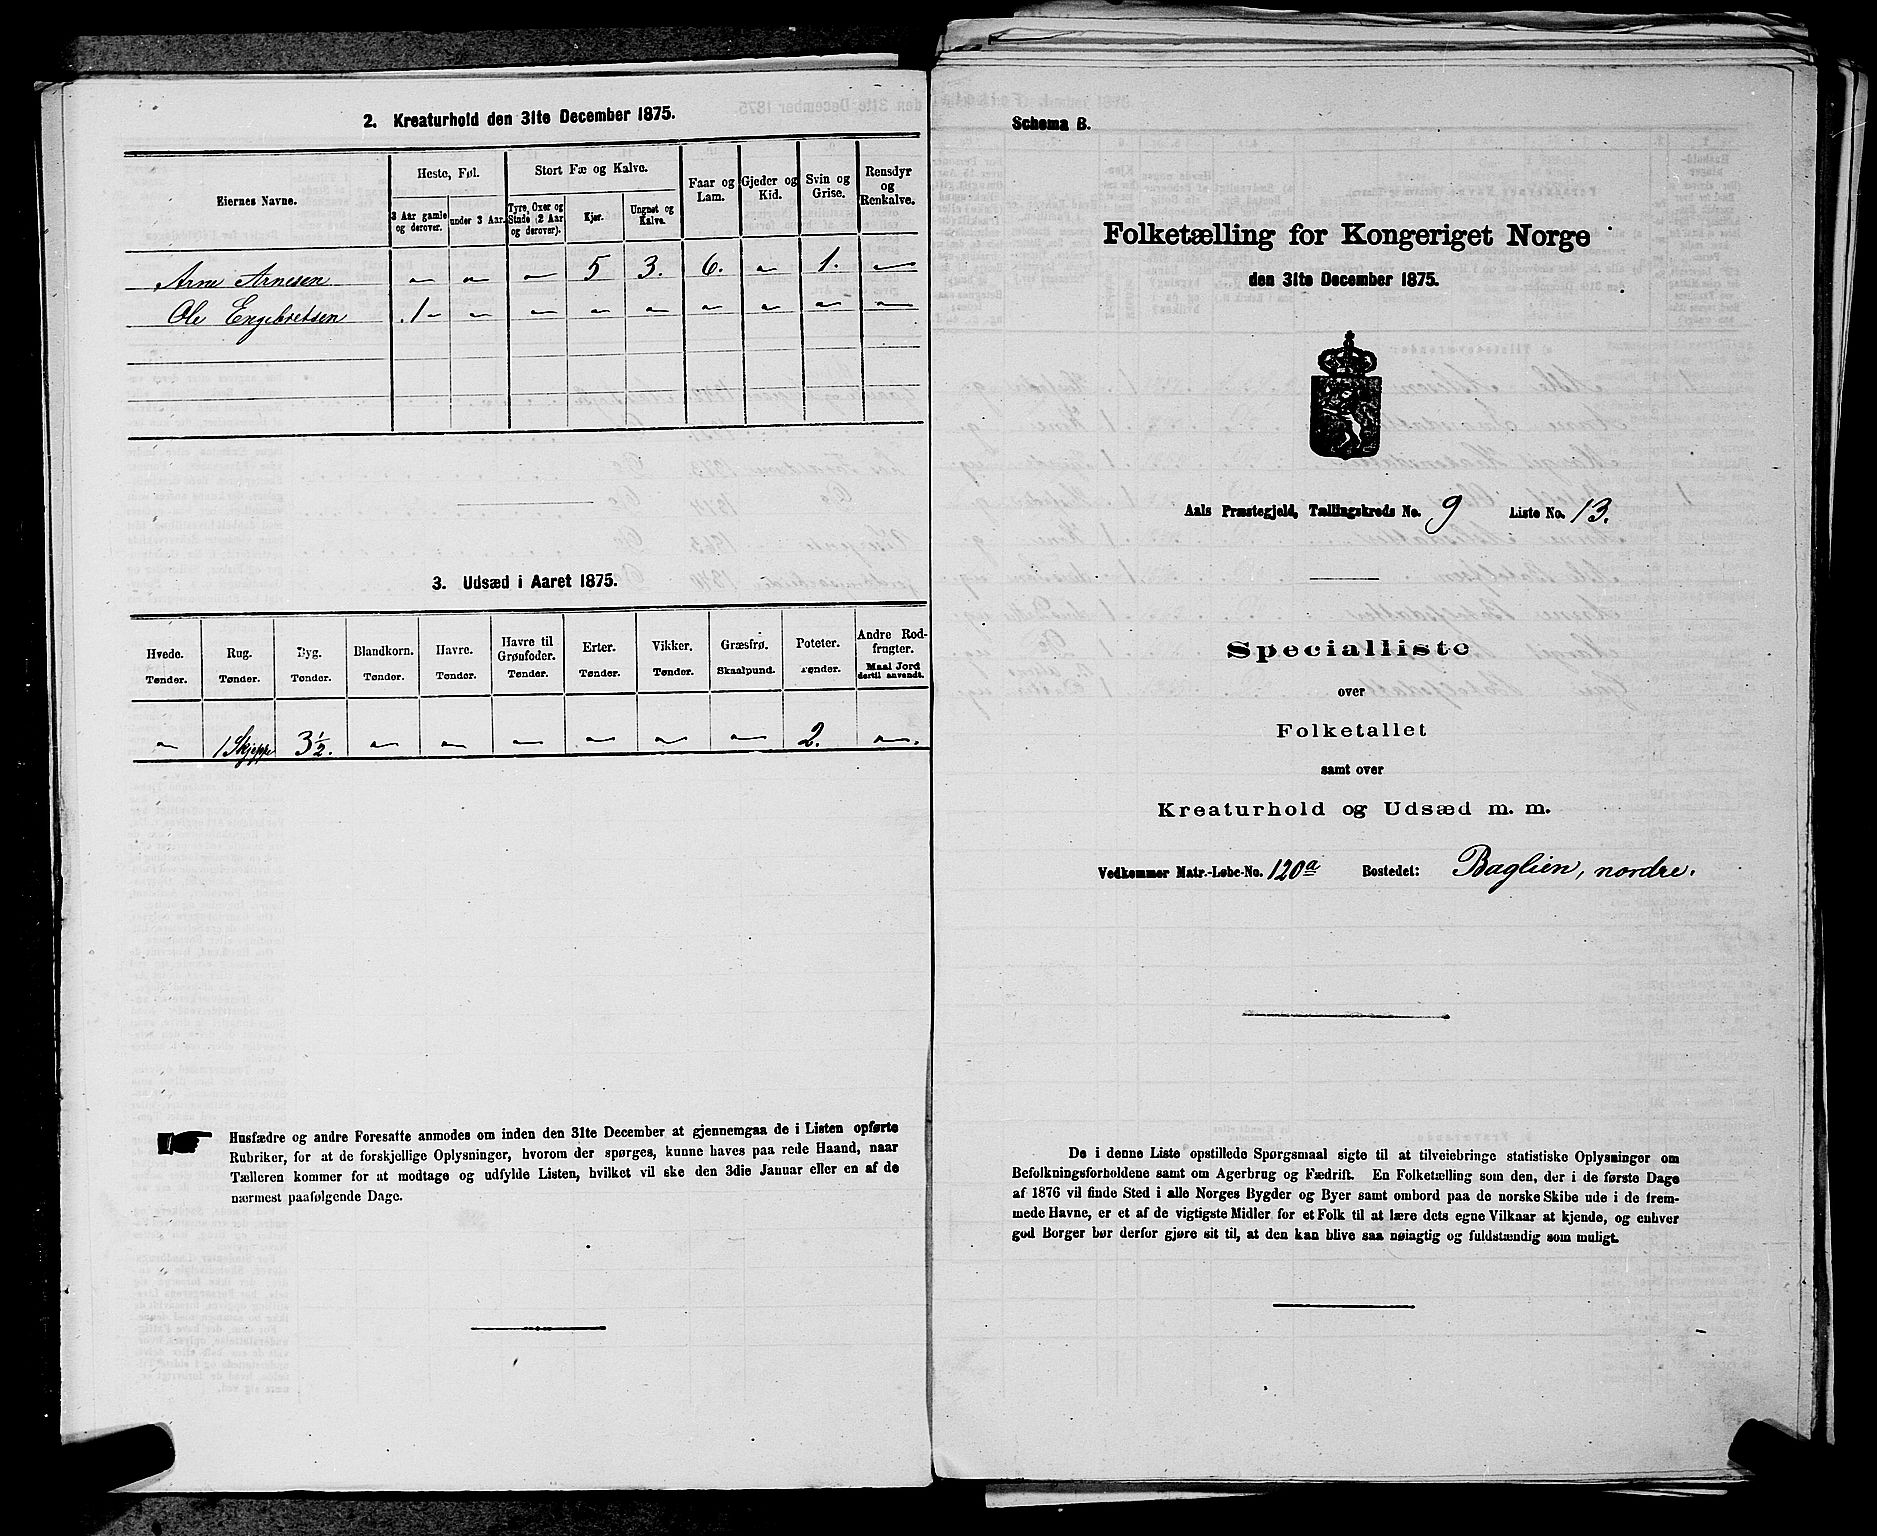 2. Kreaturhold den 31te December 1875.
Eiernes Navne.
Heste, Føl.
Stort Fæ og Kalve.
Faar og Lam.
Gjeder og Kid.
Svin og Grise.
Rensdyr og Renkalve.
3 Aar gamle og derover.
under 3 Aar.
Tyre, Oxer og Stude (2 Aar og derover).
Kjør.
Ungnøt og Kalve.
Arne Arnesen " " " 5 3. 6. " 1. "
Ole Engebretsen .1 " " " " " " " " "
3. Udsæd i Aaret 1875.
Hvede. Rug. Byg. Blandkorn. Havre. Havre til Grønfoder. Erter. Vikker. Græsfrø. Poteter. Andre Rodfrugter.
Tønder. Tønder. Tønder. Tønder. Tønder. Tønder. Tønder. Tønder. Skaalpund. Tønder. Maal Jord dertil anvendt.
" 1 Skjeppe 3½. " " " " " " 2. ".
Husfædre og andre Foresatte anmodes om inden den 31te December at gjennemgaa de i Listen opførte
Rubriker, for at de forskjellige Oplysninger, hvorom der spørges, kunne haves paa rede Haand, naar
Tælleren kommer for at modtage og udfylde Listen, hvilket vil ske den 3die Januar eller en af de
nærmest paafølgende Dage.
Schema B.
Folketælling for Kongeriget Norge
den 31te December 1875.
Aals Præstegjeld, Tællingskreds No. 9 Liste No. 13.
Specialliste
over
Folketallet
samt over
Kreaturhold og Udsæd m. m.
Vedkommer Matr.-Løbe-No. 120a Bostedet: Baglien, nordre.
De i denne Liste opstillede Spørgsmaal sigte til at tilveiebringe statistiske Oplysninger om
Befolkningsforholdene samt om Agerbrug og Fædrift. En Folketælling som den, der i de første Dage
af 1876 vil finde Sted i alle Norges Bygder og Byer samt ombord paa de norske Skibe ude i de frem-
mede Havne, er et af de vigtigste Midler for et Folk til at lære dets egne Vilkaar at kjende, og enhver
god Borger bør derfor gjøre sit til, at den kan blive saa nøiagtig og fuldstændig som muligt.